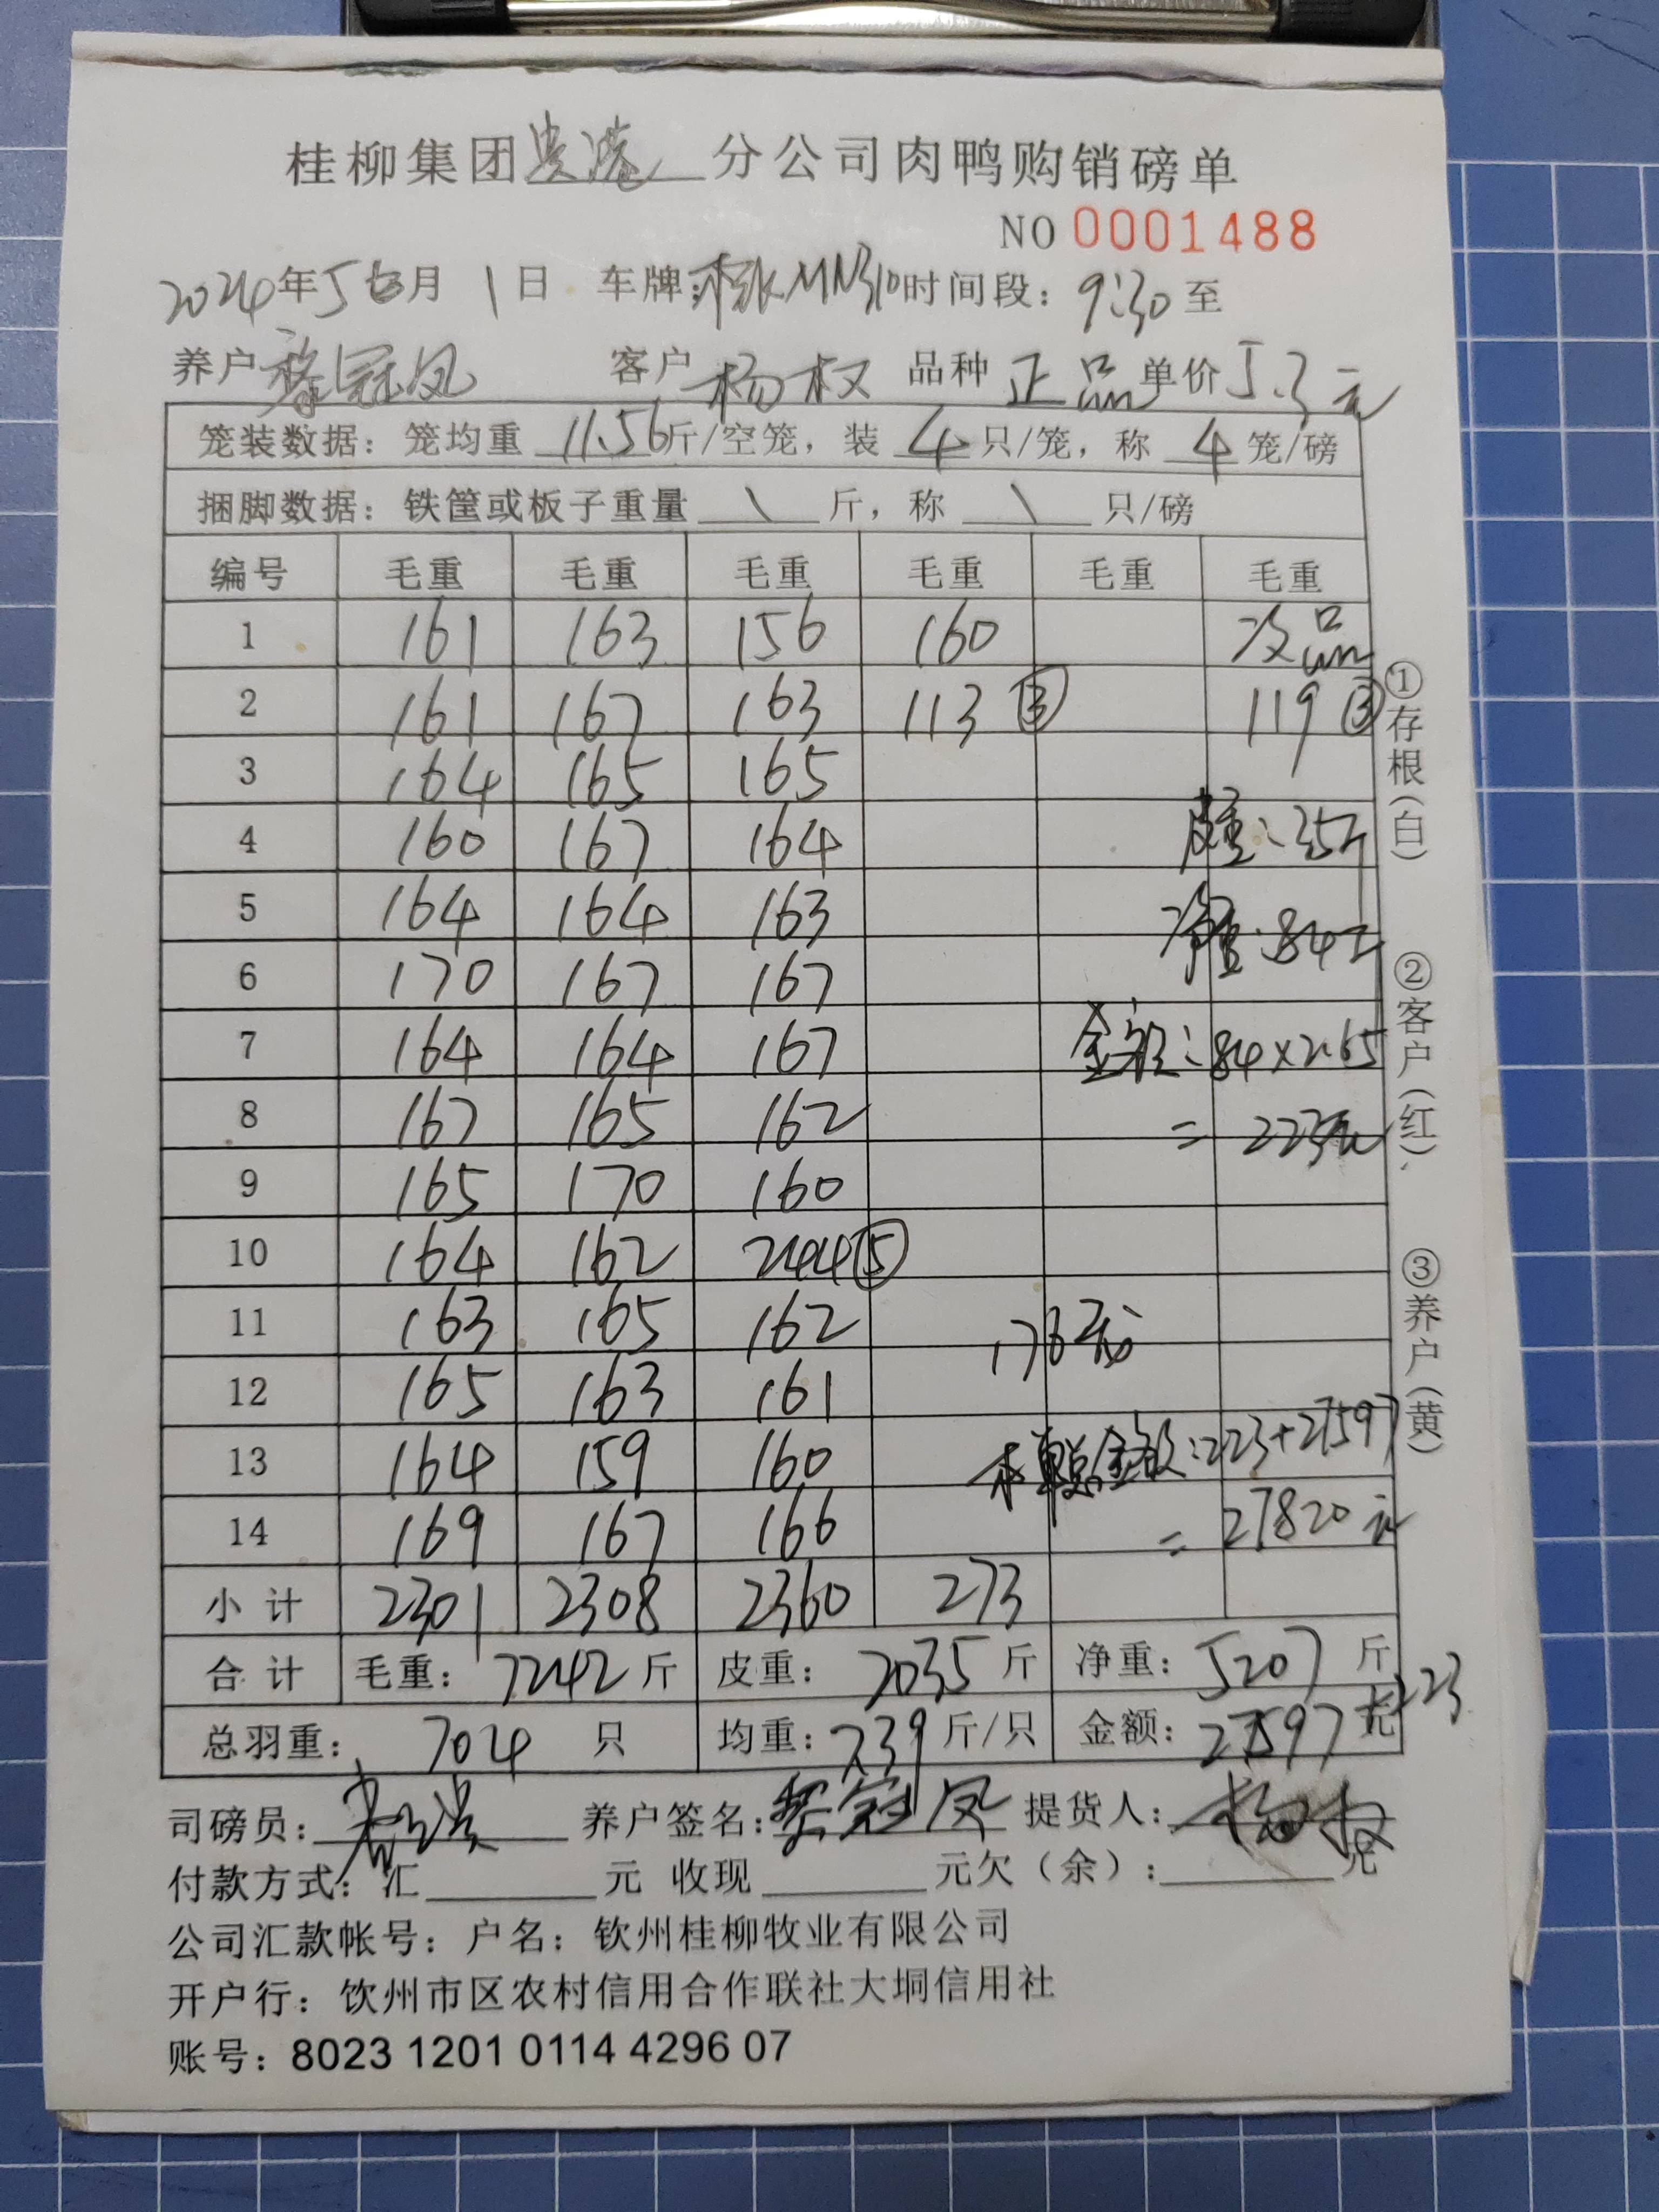 桂柳集团贵港分公司肉鸭购销磅单
NO 0001488
2024年5月1日 车牌: 时间段: 9:30 至
养户 冠凤 客户 杨权 品种 正品 单价 5.3元
笼装数据: 笼均重 11.56斤/空笼, 装 4 只/笼, 称 4 笼/磅
捆脚数据: 铁筐或板子重量 \ 斤, 称 \ 只/磅
编号 毛重 毛重 毛重 毛重 毛重 毛重
1 161 163 156 160 次品
2 161 167 163 113 ③ 119 ③
3 164 165 165
4 160 167 164 皮重:35斤
5 164 164 163 净重:84斤
6 170 167 167
7 164 164 167 金额:84×2.65
8 167 165 162 = 223元
9 165 170 160
10 164 162 244 ⑤
11 163 165 162 176
12 165 163 161
13 164 159 160 本单总金额:223+27597
14 169 167 166 = 27820元
小计 2301 2308 2360 273
合计 毛重: 7242斤 皮重: 2035斤 净重: 5207斤
总羽重: 704 只 均重: 7.39斤/只 金额: 27597元 +223
司磅员: 养户签名: 冠凤 提货人: 杨权
付款方式: 汇 元 收现 元欠(余): 元
公司汇款帐号: 户名: 钦州桂柳牧业有限公司
开户行: 饮州市区农村信用合作联社大垌信用社
账号: 8023 1201 0114 4296 07
①存根(白)
②客户(红)
③养户(黄)